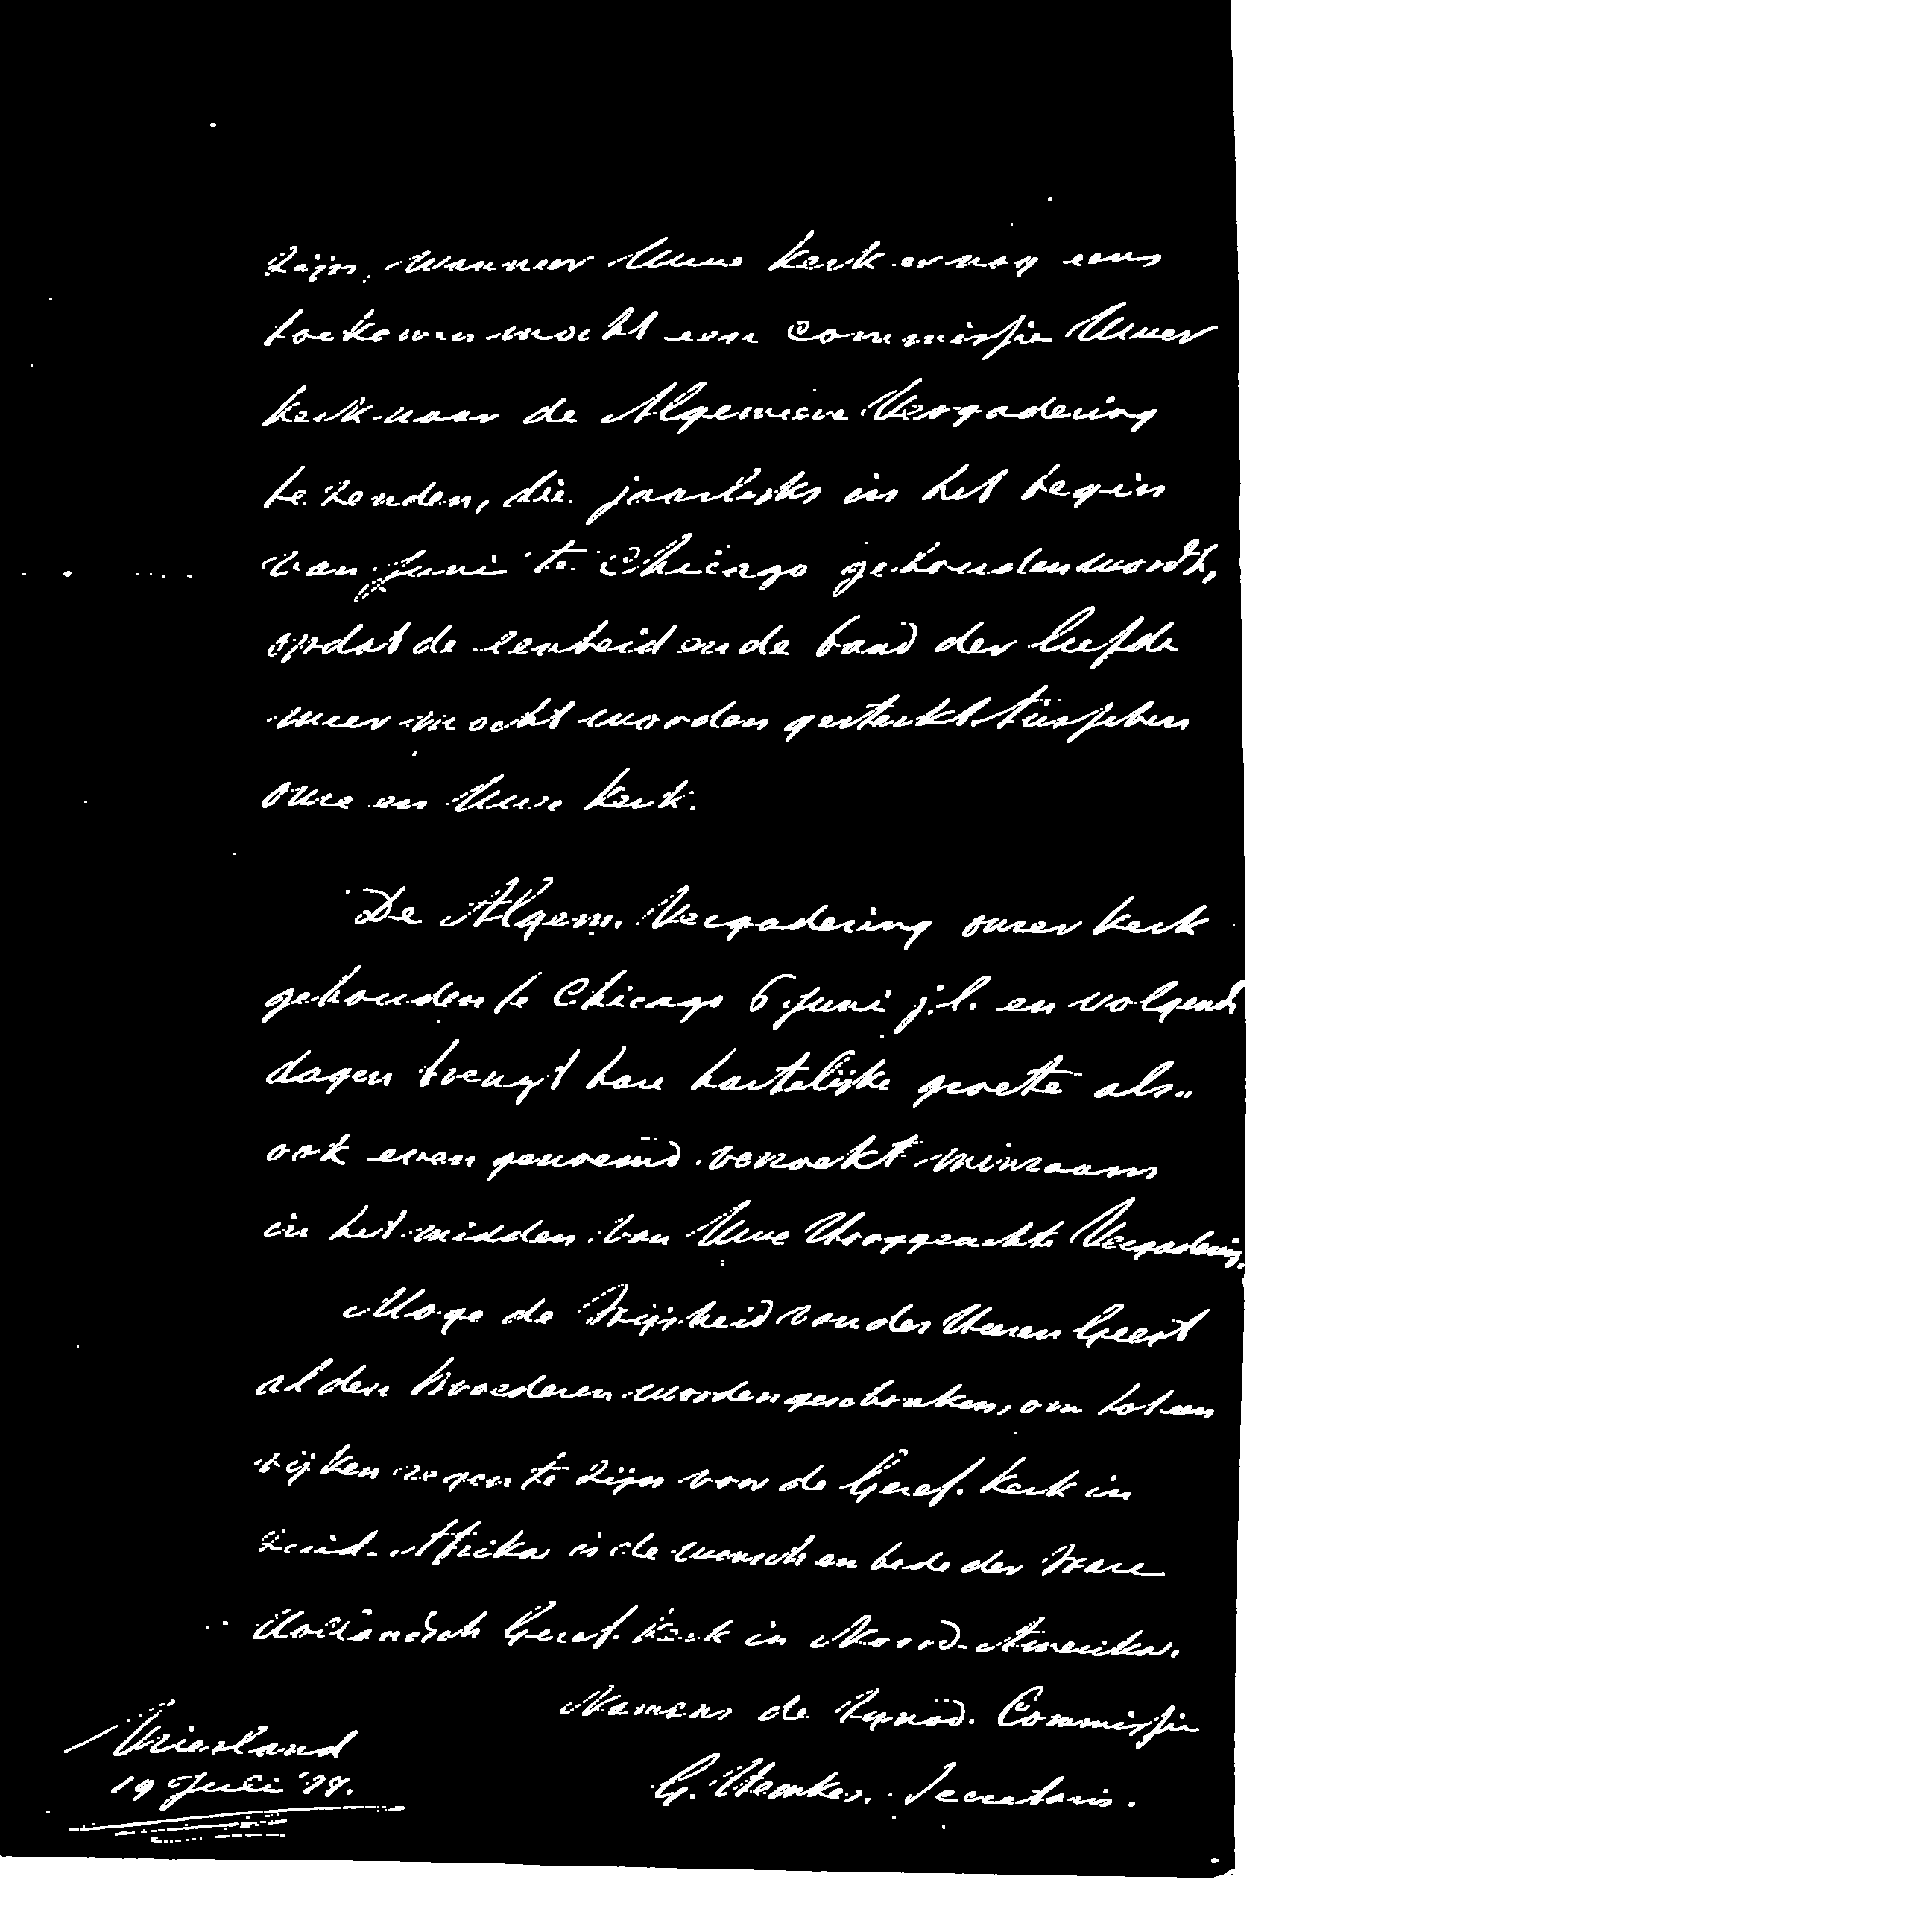 zijn, wanneer Uwe kerk er nog eens
toekomen mocht een Commissie Uwer
kerk naar de Algemeene Vergadering
te zenden, die jaarlijks in het begin
van Juni te Chicago gehouden wordt,
opdat de eenheid en de band der liefde
meer mocht worden gesterkt tusschen
onze en Uwe kerk.
De Algem. Vergadering onzer kerk
gehouden te Chicago 6 Juni j.l. en volgend
dagen brengt hare hartelijke groette als
ook even gemeend verzoekt minzaam
in het midden van Uwe Hooggeachte Vergadering.
Moge de Wijsheid van des Heeren Geest
al den Broederen worden geschonken, om tot een
rijken zegen te zijn voor de Geref. kerk in
Zuid-Afrika is de wensch en bede der Ware
Hollandsch Geref. kerk in Noord-Amerika.
Namens de Synod. Commissie
Vriesland
19 Juli '78.
G. Hemkes, Secretaris.